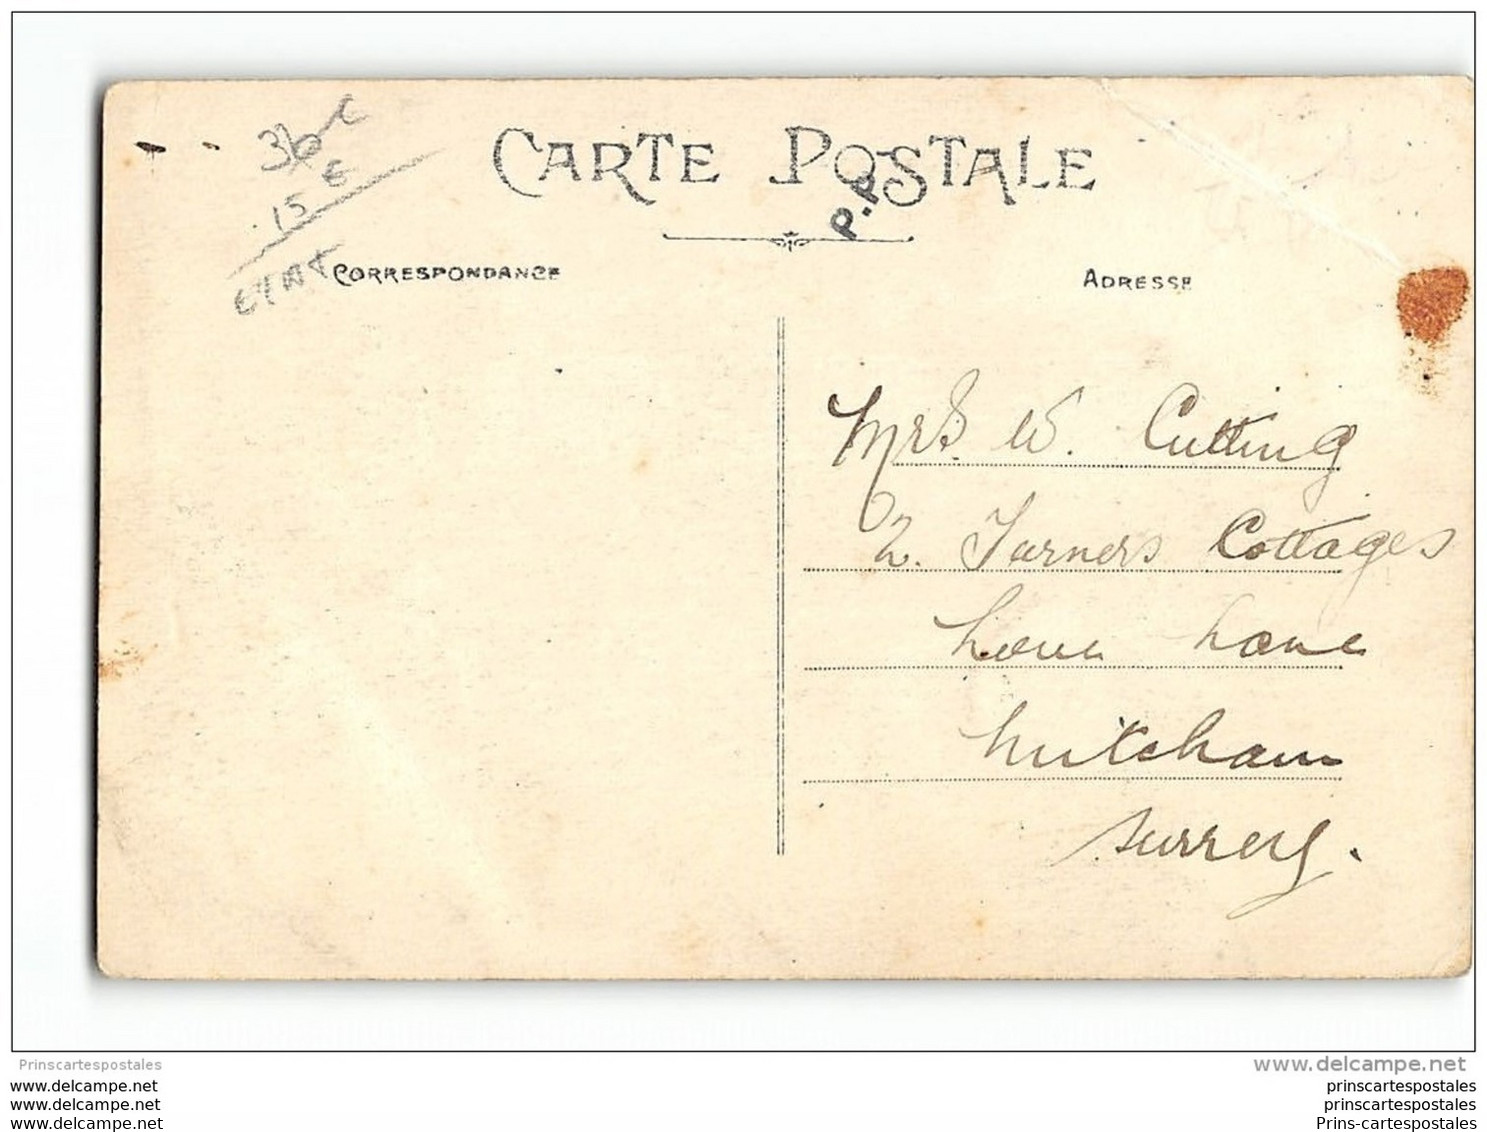 CARTE POSTALE
P.P
36
15 €
CORRESPONDANCE
ADRESSE
Mrs. W. Cutting
2. Turners Cottages
Love Lane
Mitcham
Surrey.
Prinscartespostales
www.delcampe.net
www.delcampe.net
www.delcampe.net
www.delcampe.net
prinscartespostales
prinscartespostales
Prins-cartespostales